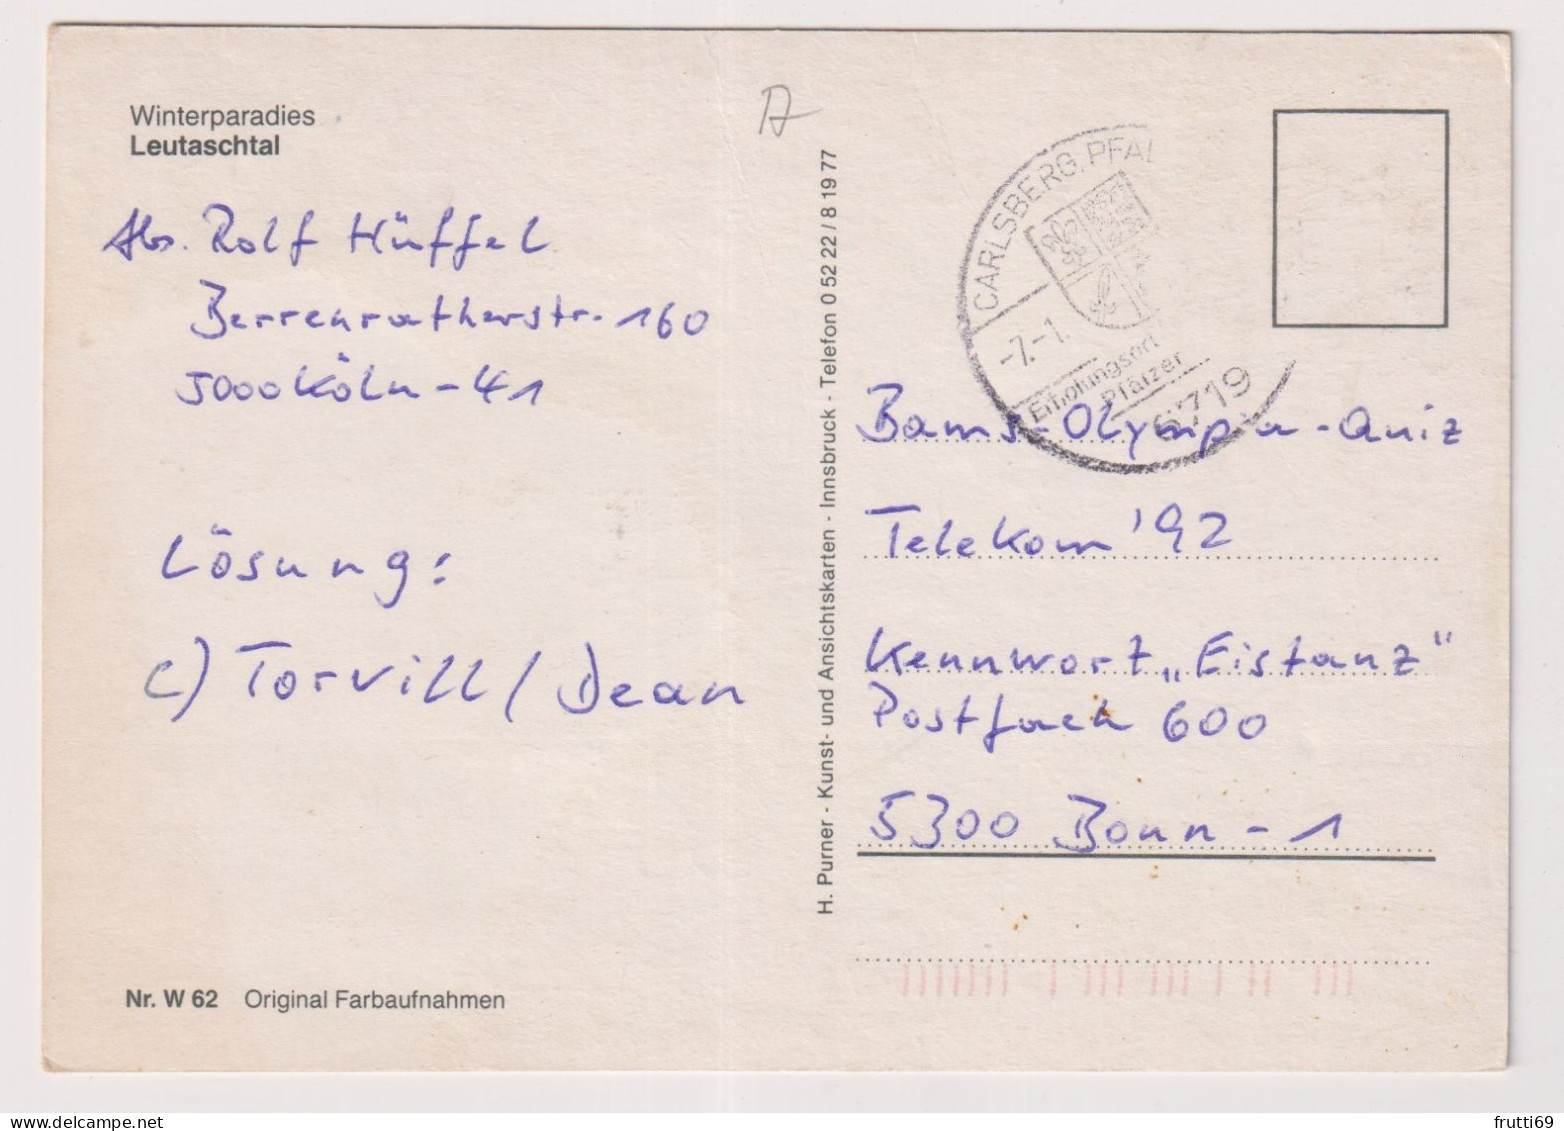 Winterparadies
Leutaschtal
Abs. Rolf Hüffel
Berrenratherstr. 160
5000 Köln-41
Lösung:
c) Torvill / Dean
Nr. W 62 Original Farbaufnahmen
H. Purner - Kunst- und Ansichtskarten - Innsbruck - Telefon 0 52 22 / 8 19 77
CARLSBERG, PFAL
-7.-1.
Erholungsort
Pfälzer
6719
Bams-Olympia-Quiz
Telekom '92
Kennwort „Eistanz"
Postfach 600
5300 Bonn-1
frutti69